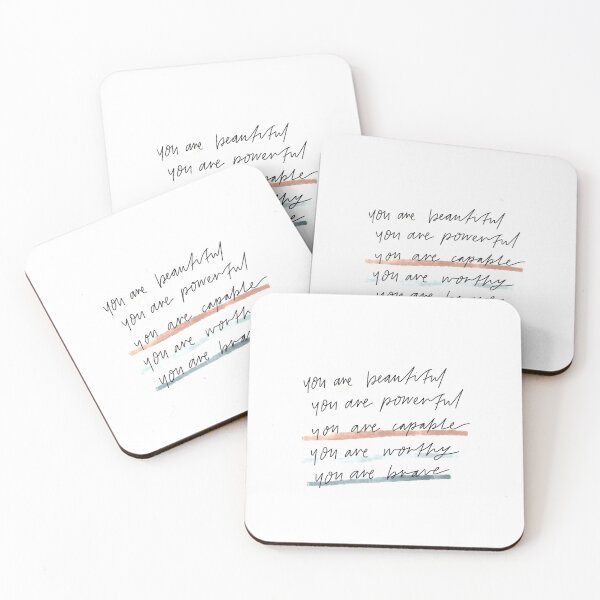 you are beautiful
you are powerful
you are beautiful
you are powerful
you are capable
you are worthy
you are
you are beautiful
you are powerful
you are capable
you are worthy
you are brave
you are beautiful
you are powerful
you are capable
you are worthy
you are brave